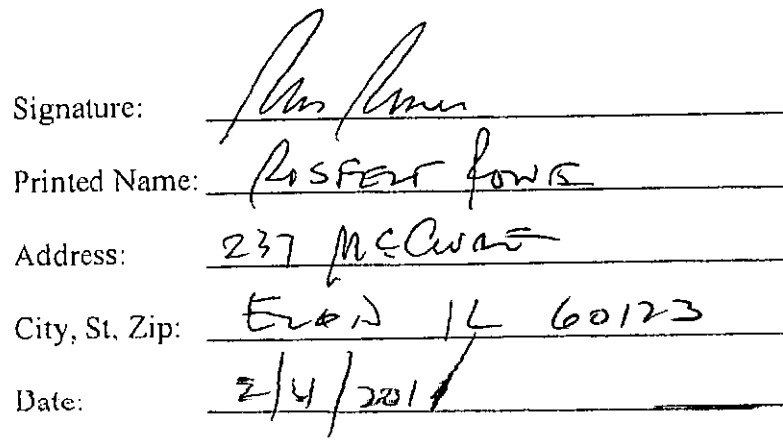 Signature:
Printed Name: ROSFELT ROWE
Address: 237 McClure
City, St, Zip: Elgin IL 60123
Date: 2/4/2011